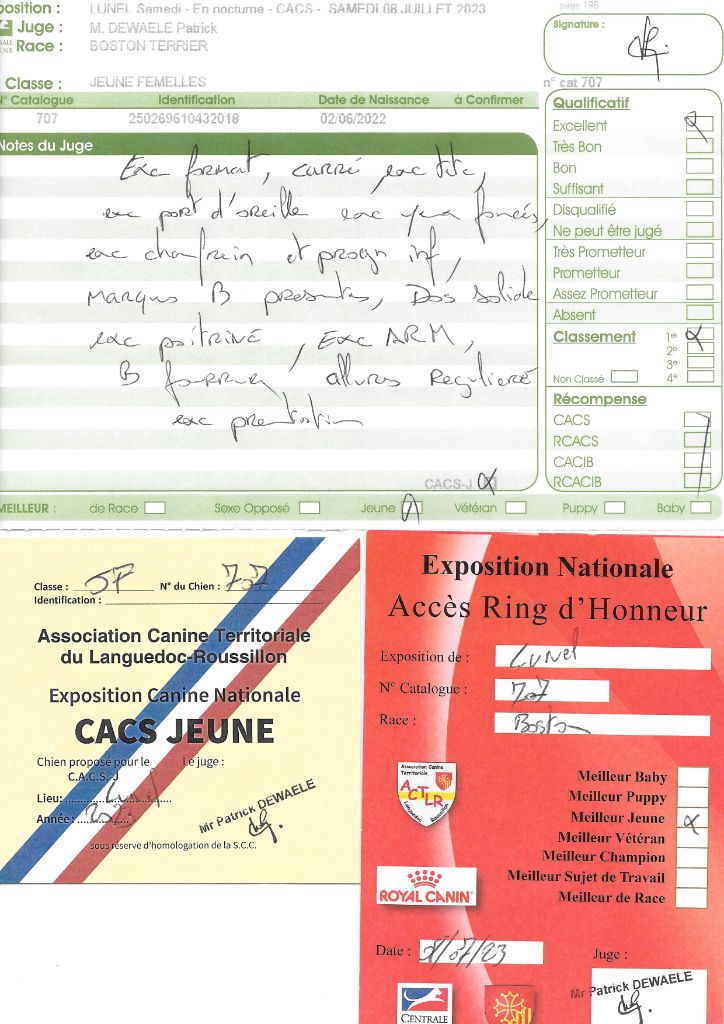 position : LUNEL Samedi - En nocturne - CACS - SAMEDI 08 JUILLET 2023
page 195
Juge : M. DEWAELE Patrick
Signature :
Race : BOSTON TERRIER
Classe : JEUNE FEMELLES
n° cat 707
N° Catalogue Identification Date de Naissance à Confirmer
707 250269610432018 02/06/2022
Notes du Juge
Exc format, carré, exc tête,
exc port d'oreille exc yeux foncés,
exc chanfrein et progn inf,
marques B presentes, Dos solide
exc poitrine, Exc ARM,
B fourrure, allures Regulieres
exc presentation
Qualificatif
Excellent
Très Bon
Bon
Suffisant
Disqualifié
Ne peut être jugé
Très Prometteur
Prometteur
Assez Prometteur
Absent
Classement 1er
2e
3e
Non Classé 4e
Récompense
CACS
RCACS
CACIB
RCACIB
CACS-J
MEILLEUR : de Race Sexe Opposé Jeune Vétéran Puppy Baby
Classe : JF N° du Chien : 707
Identification :
Association Canine Territoriale
du Languedoc-Roussillon
Exposition Canine Nationale
CACS JEUNE
Chien proposé pour le Le juge :
C.A.C.S.-J
Lieu: Lunel
Année: 2023
Mr Patrick DEWAELE
sous réserve d'homologation de la S.C.C.
Exposition Nationale
Accès Ring d'Honneur
Exposition de : Lunel
N° Catalogue : 707
Race : Boston
Association Canine
Territoriale
ACTLR
Languedoc Roussillon
Meilleur Baby
Meilleur Puppy
Meilleur Jeune
Meilleur Vétéran
Meilleur Champion
Meilleur Sujet de Travail
Meilleur de Race
ROYAL CANIN
Date : 8/07/23 Juge :
Mr Patrick DEWAELE
CENTRALE